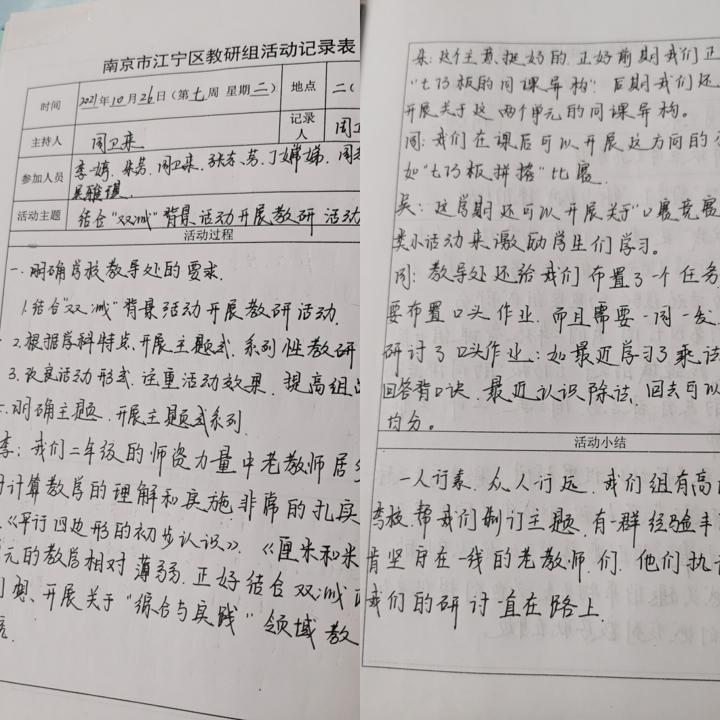 南京市江宁区教研组活动记录表
时间 2021年10月26日(第七周 星期二) 地点 二(
主持人 周卫来 记录人 周卫
参加人员 李一婷、朱芳、周卫来、张冬芳、丁嫦娣、周
吴雅琪、
活动主题 结合"双减"背景活动开展教研活动
活动过程
一、明确学校教导处的要求.
1.结合"双减"背景活动开展教研活动.
2.根据学科特点,开展主题式、系列性教研
3.改良活动形式,注重活动效果,提高组
二、明确主题、开展主题式系列.
李:我们二年级的师资力量中老教师居
对计算教学的理解和实施非常的扎实
《平行四边形的初步认识》、《厘米和米
元的教学相对薄弱,正好结合双减
划、开展关于"综合与实践"领域教
朱:这个主意挺好的,正好前期我们正
"七巧板的同课异构",后期我们还
开展关于这两个单元的同课异构。
周:我们在课后可以开展这方面的
如"七巧板拼搭"比赛.
吴:这学期还可以开展关于"口算竞赛
类小活动来激励学生们学习。
周:教导处还给我们布置了一个任务
要布置口头作业,而且需要一周一发
研讨了口头作业:如最近学习了乘法
回答背口诀,最近认识除法,回去可以
均分。
活动小结
一人计素,众人计远,我们组有高
李校,帮我们制订主题,有一群经验丰
肯坚守在一线的老教师们,他们执
我们的研讨一直在路上.